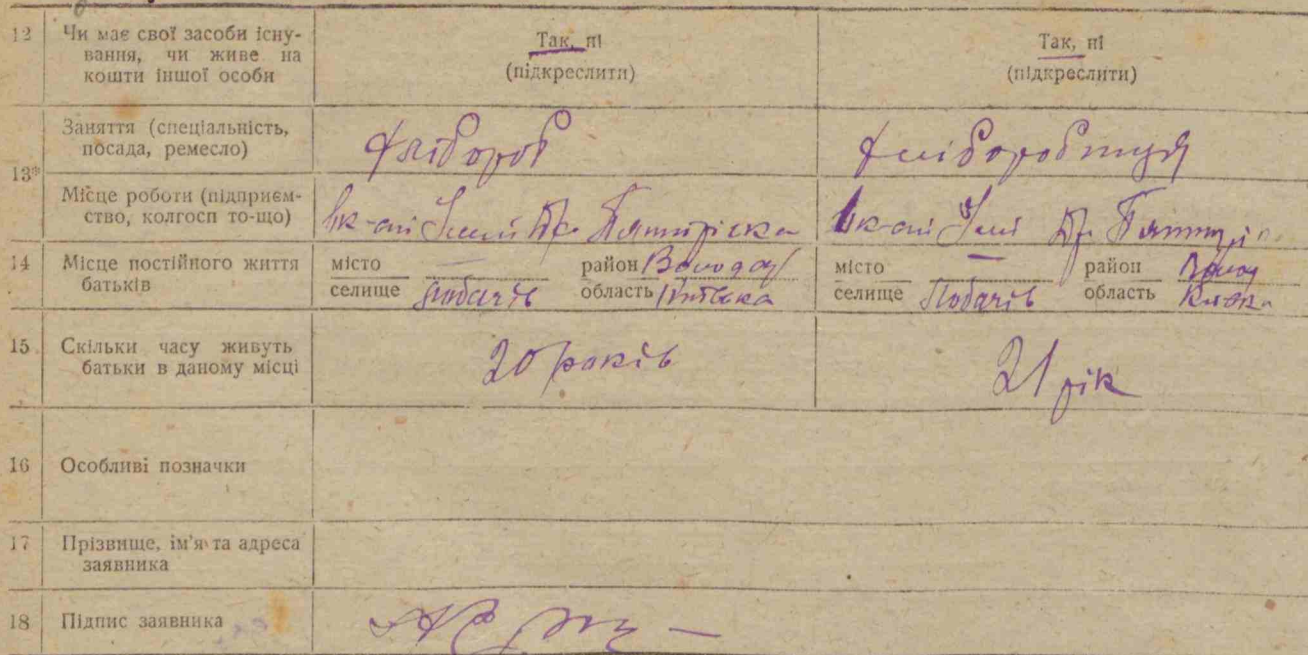 12 Чи має свої засоби існу-
вання, чи живе на
кошти іншої особи
Так, ні
(підкреслити)
Так, ні
(підкреслити)
13*
Заняття (спеціальність,
посада, ремесло)
Хлібороб
Хліборобниця
Місце роботи (підприєм-
ство, колгосп то-що)
14 Місце постійного життя
батьків
місто —
селище
район
область
місто —
селище
район
область
15 Скільки часу живуть
батьки в даному місці
20 років
21 рік
16 Особливі позначки
17 Прізвище, ім'я та адреса
заявника
18 Підпис заявника